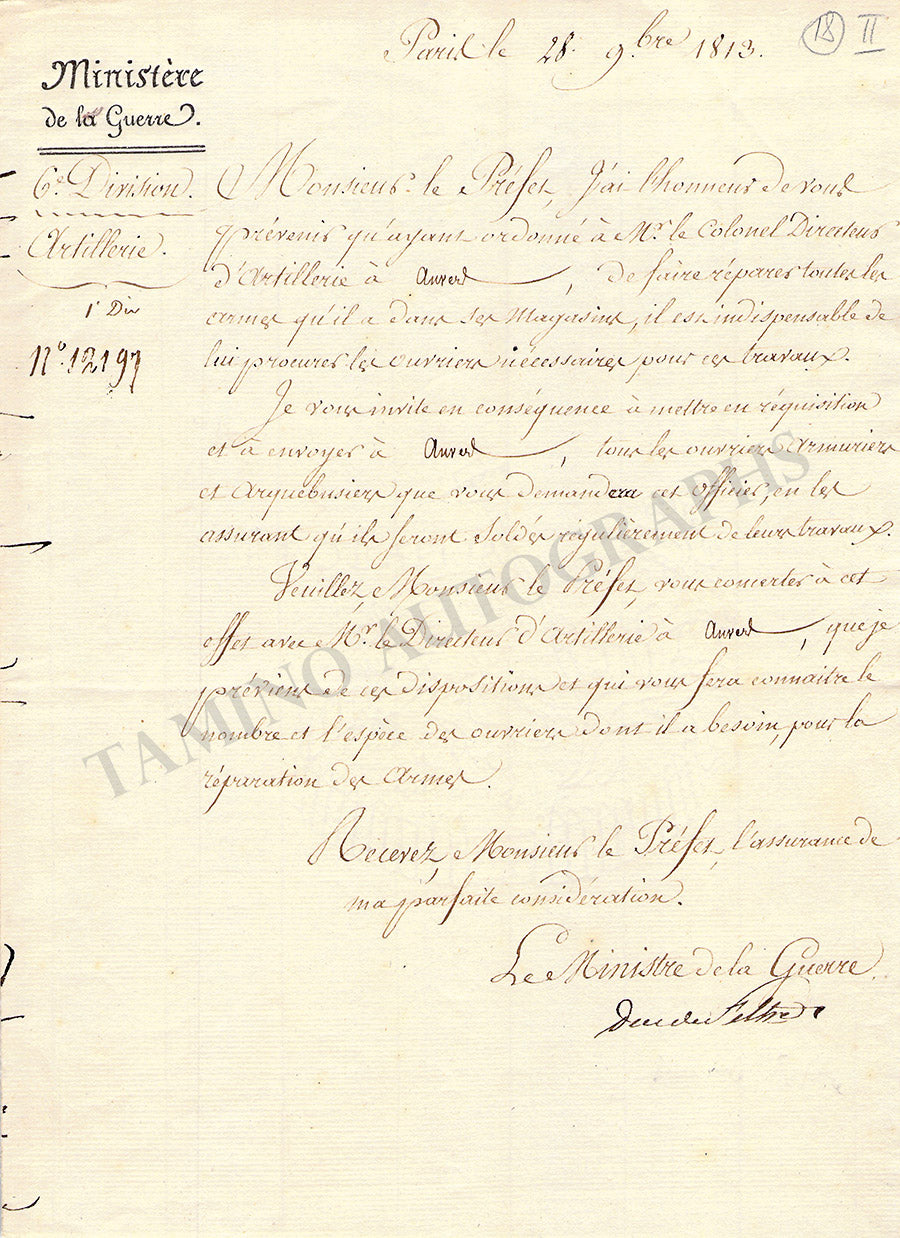 Paris le 28 9.bre 1813.
18 II
Ministère
de la Guerre.
6e Division.
Artillerie.
1e Don
No. 12197
Monsieur le Préfet, J'ai l'honneur de vous
prévenir qu'ayant ordonné à Mr. le Colonel Directeur
d'Artillerie à Anvers, de faire réparer toutes les
armes qu'il a dans ses Magasins, il est indispensable de
lui procurer les ouvriers nécessaires pour ces travaux.
Je vous invite en conséquence à mettre en réquisition
et à envoyer à Anvers, tous les ouvriers Armuriers
et Arquebusiers que vous demandera cet Officier, en les
assurant qu'ils seront Soldés régulièrement de leurs travaux.
Veuillez, Monsieur le Préfet, vous concerter à cet
effet avec Mr. le Directeur d'Artillerie à Anvers, que je
préviens de ces dispositions et qui vous fera connaitre le
nombre et l'espèce des ouvriers dont il a besoin, pour la
réparation des Armes.
Recevez, Monsieur le Préfet, l'assurance de
ma parfaite considération.
Le Ministre de la Guerre
Duc de Feltre
TAMINO AUTOGRAPHS